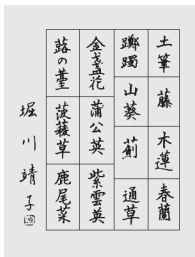 土筆 藤 木蓮 春蘭
躑躅 山葵 薊 通草
金盞花 蒲公英 紫雲英
蕗の薹 菠薐草 鹿尾菜
堀川靖子